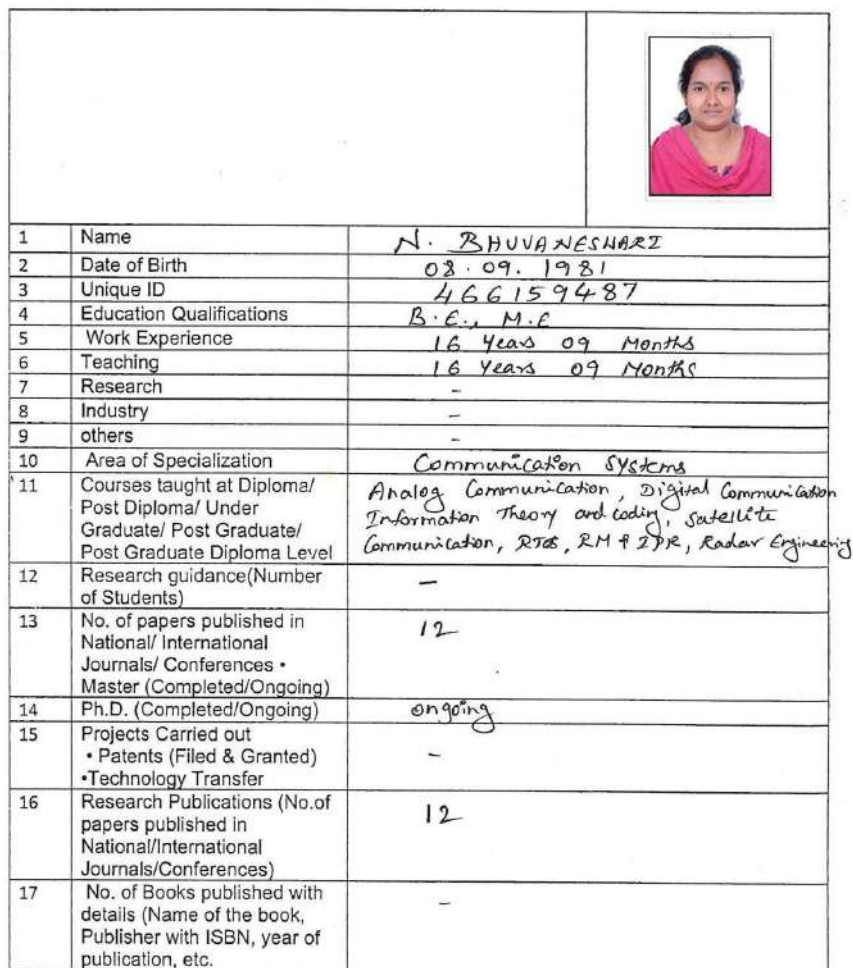 1 Name N. BHUVANESHARI
2 Date of Birth 08.09.1981
3 Unique ID 466159487
4 Education Qualifications B.E., M.E
5 Work Experience 16 Years 09 Months
6 Teaching 16 Years 09 Months
7 Research -
8 Industry -
9 others -
10 Area of Specialization Communication Systems
11 Courses taught at Diploma/ Analog Communication, Digital Communication
Post Diploma/ Under Information Theory and coding, Satellite
Graduate/ Post Graduate/ Communication, RTOS, RM & IPR, Radar Engineering
Post Graduate Diploma Level
12 Research guidance(Number -
of Students)
13 No. of papers published in 12
National/ International
Journals/ Conferences •
Master (Completed/Ongoing)
14 Ph.D. (Completed/Ongoing) ongoing
15 Projects Carried out
• Patents (Filed & Granted) -
•Technology Transfer
16 Research Publications (No.of 12
papers published in
National/International
Journals/Conferences)
17 No. of Books published with -
details (Name of the book,
Publisher with ISBN, year of
publication, etc.